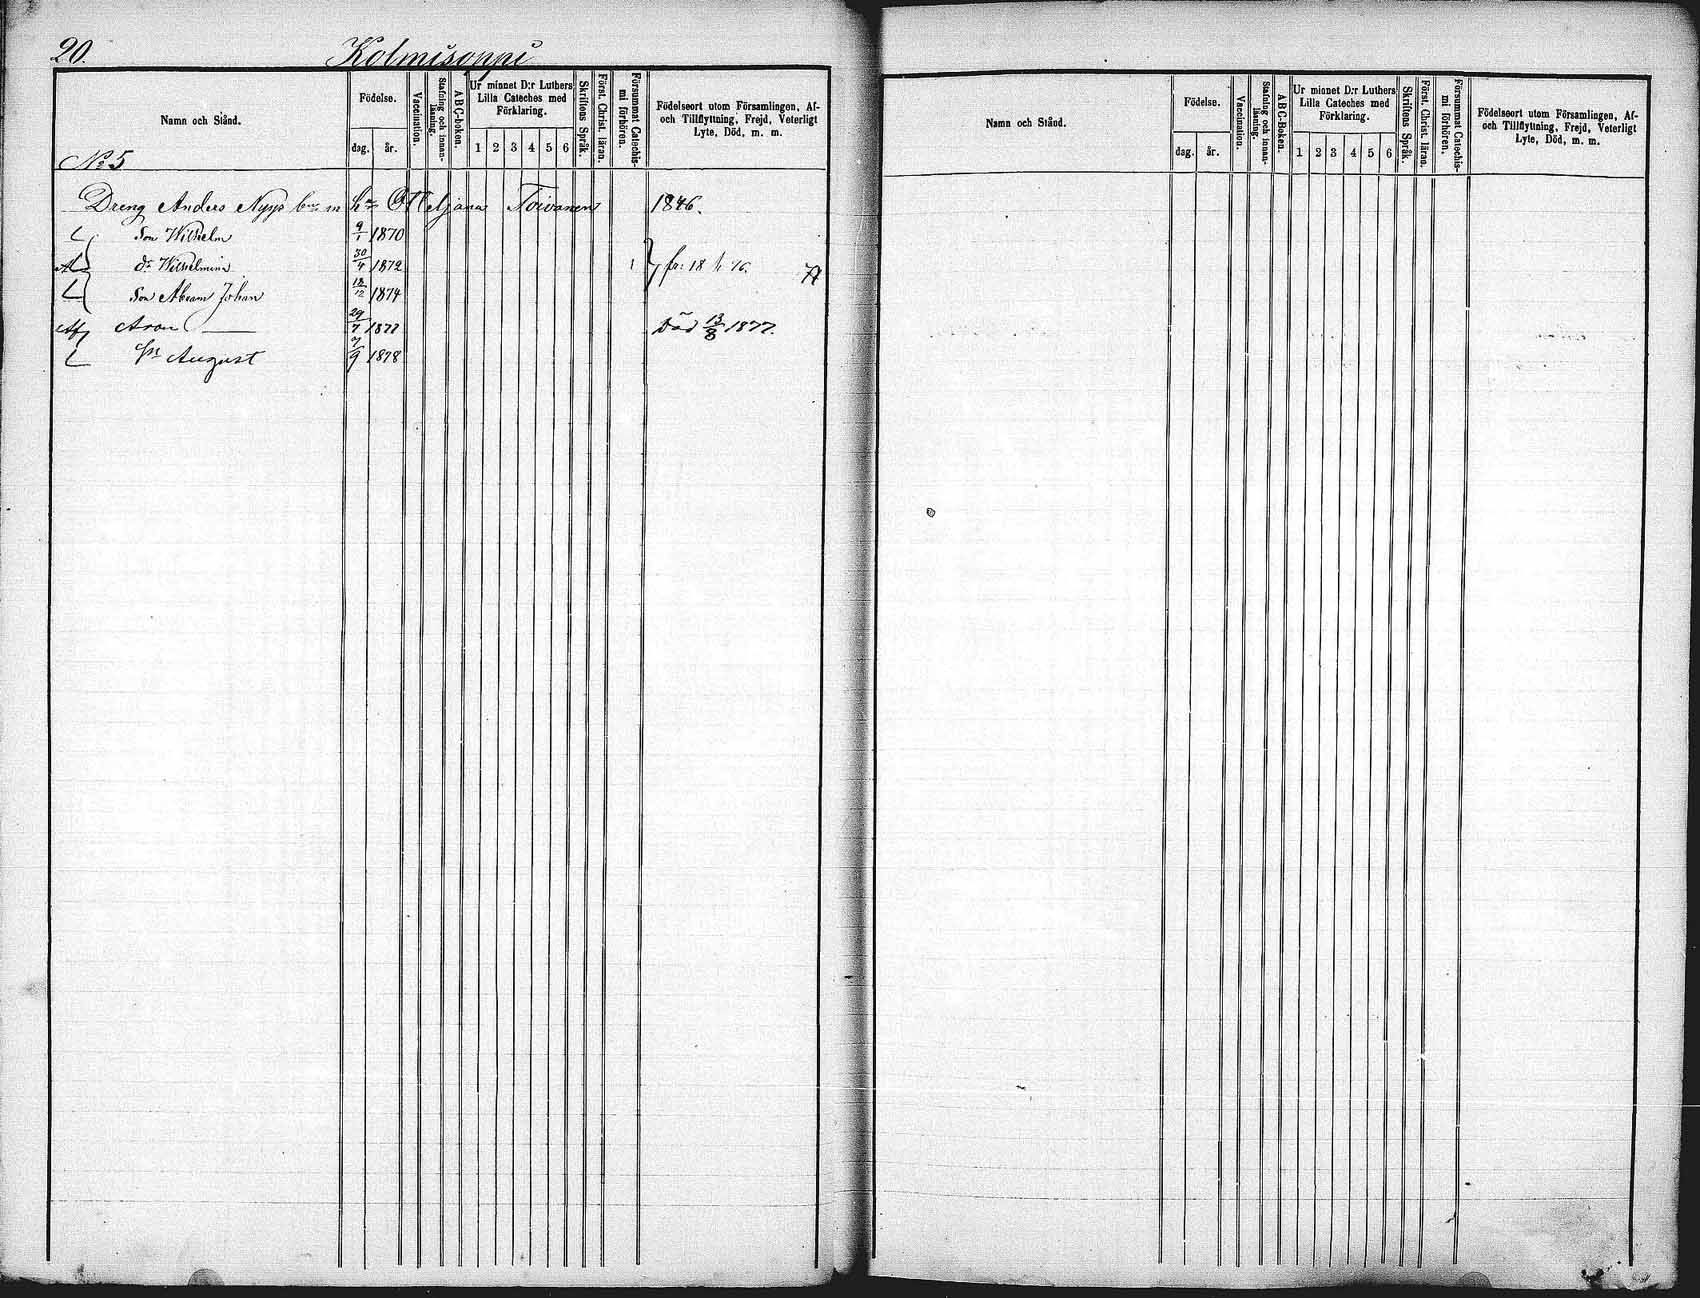 20. Kolmisoppi
Namn och Stånd.
Födelse.
dag. år.
Vaccination.
Stafning och innanläsning.
ABC-boken.
Ur minnet D:r Luthers Lilla Cateches med Förklaring.
1 2 3 4 5 6
Skriftens Språk.
Först. Christ. läran.
Försummat Catechismi förhören.
Födelseort utom Församlingen, Af-
och Tillflyttning, Frejd, Veterligt
Lyte, Död, m. m.
No 5
Dreng Anders Nyys m hu Otteljana Toivanen 1846.
Son Wilhelm 9/1 1870
dr Wilhelmina 30/4 1872 1 fr: 18 76.
Son Abram Johan 18/12 1874
Aron 29/7 1877 Död 13/8 1877.
August 7/9 1878
Namn och Stånd.
Födelse.
dag. år.
Vaccination.
Stafning och innanläsning.
ABC-boken.
Ur minnet D:r Luthers Lilla Cateches med Förklaring.
1 2 3 4 5 6
Skriftens Språk.
Först. Christ. läran.
Försummat Catechismi förhören.
Födelseort utom Församlingen, Af-
och Tillflyttning, Frejd, Veterligt
Lyte, Död, m. m.